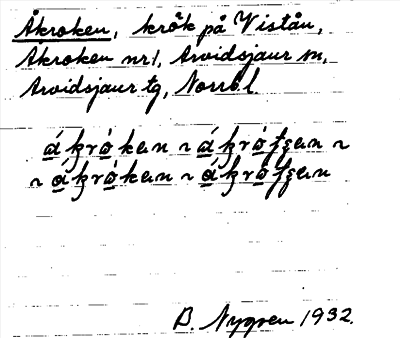 Åkroken, krök på Vistån,
Åkroken nr 1, Arvidsjaur sn,
Arvidsjaur tg, Norrb l.
ákróken ~ ákrótʃen ~
~ ákróken ~ ákrótʃen
B. Nygren 1932.